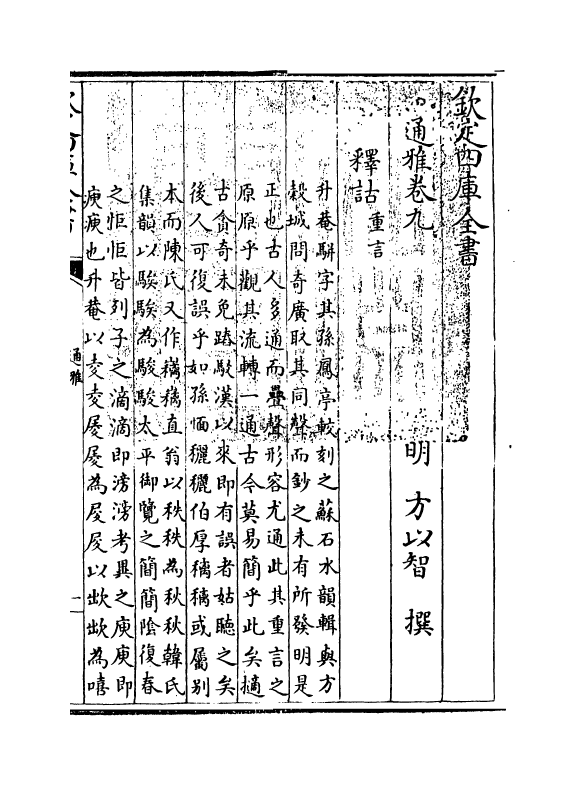 欽定四庫全書
通雅卷九
明 方以智 撰
釋詁重言
升菴駢字其孫鳳亭較刻之蘇石水韻輯與方
穀城問奇廣取其同聲而鈔之未有所發明是
正也古人多通而疊聲形容尤通此其重言之
原原乎觀其流轉一通古今莫易簡乎此矣擿
古貪奇未免踳駮漢以來即有誤者姑聽之矣
後人可復誤乎如孫愐玁玁伯厚穪穪或屬别
本而陳氏又作穖穖直翁以秩秩為秋秋韓氏
集韻以騃騃為駿駿太平御覽之簡簡陰復春
之怇怇皆列子之漓漓即滂滂考異之庚庚即
庾庾也升菴以夌夌屐屐為屐屐以欪欪為嘻
通雅
一